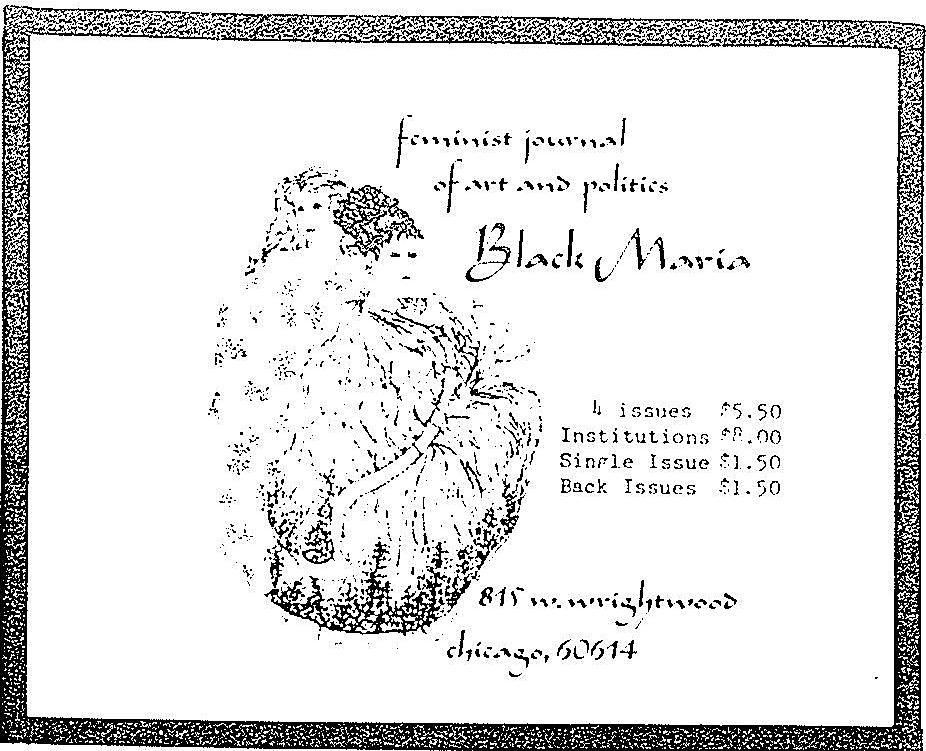 feminist journal
of art and politics
Black Maria
4 issues $5.50
Institutions $8.00
Single Issue $1.50
Back Issues $1.50
815 w. wrightwood
chicago, 60614